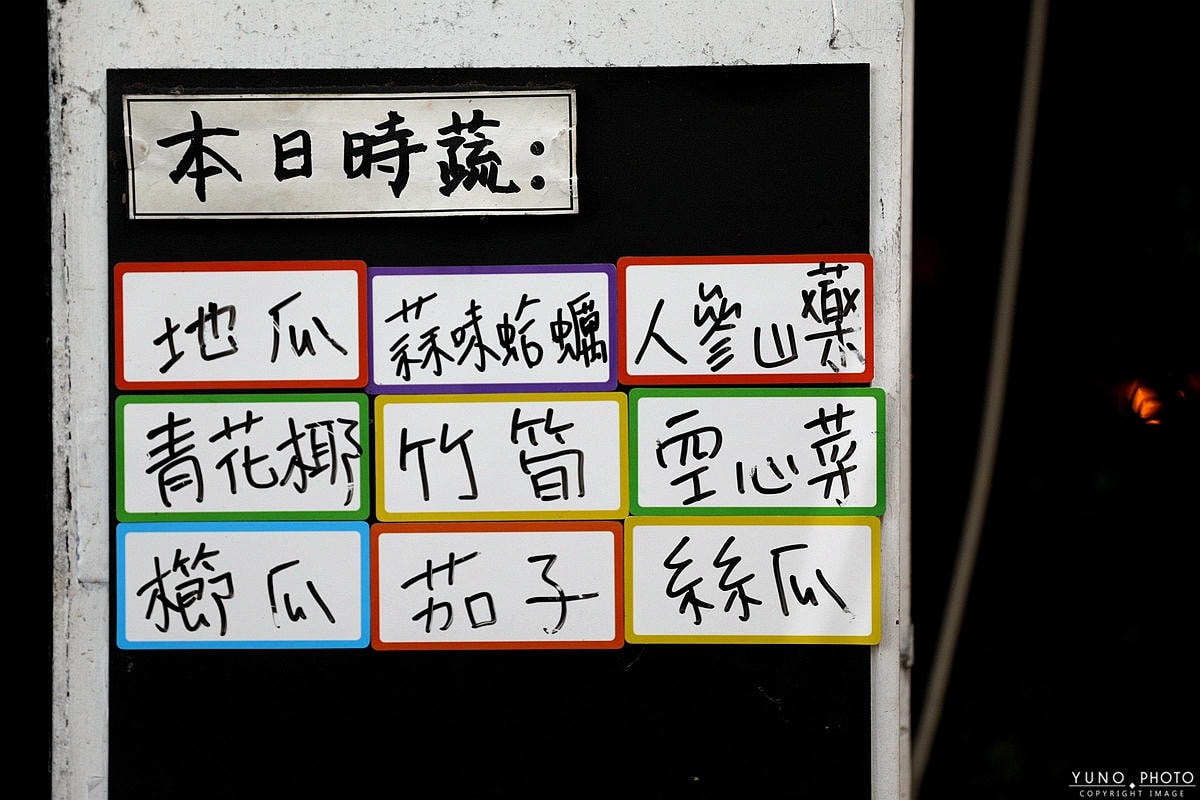 本日時蔬:
地瓜
蒜味蛤蠣
人參山藥
青花椰
竹筍
空心菜
櫛瓜
茄子
絲瓜
YUNO PHOTO
COPYRIGHT IMAGE